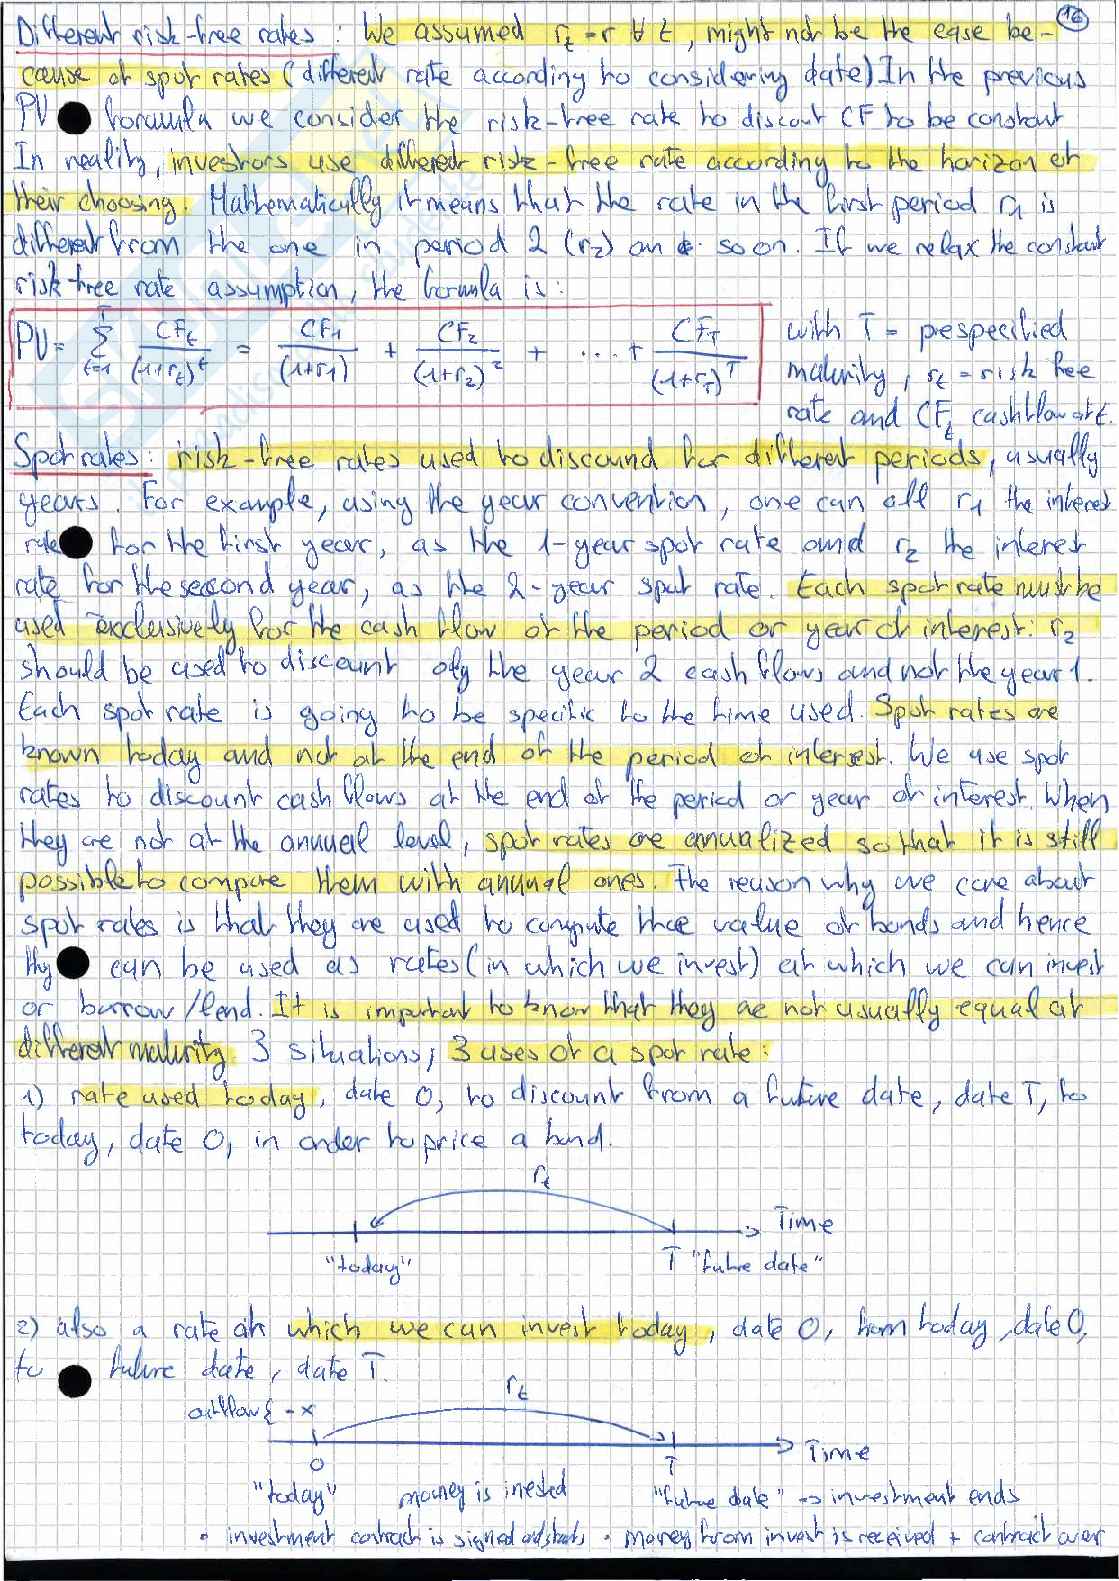 16
Different risk-free rates: We assumed rt = r ∀ t, might not be the case be-
cause of spot rates (different rate according to considering date) In the previous
PV formula we consider the risk-free rate to discout CF to be constant
In reality, investors use different risk-free rate according to the horizon of
their choosing. Mathematically it means that the rate in the first period r1 is
different from the one in period 2 (r2) an so on. If we relax the constant
risk-free rate assumption, the formula is:
PV = T Σ t=1 CFt/(1+rt)^t = CF1/(1+r1) + CF2/(1+r2)^2 + ... + CFT/(1+rT)^T
with T = prespecified
maturity, rt = risk free
rate and CFt cashflow at t.
Spot rates: risk-free rates used to discound for different periods, usually
years. For example, using the year convention, one can call r1 the interest
rate for the first year, as the 1-year spot rate and r2 the interest
rate for the second year, as the 2-year spot rate. Each spot rate must be
used exclusively for the cash flow of the period or year of interest: r2
should be used to discount only the year 2 cash flows and not the year 1.
Each spot rate is going to be specific to the time used. Spot rates are
known today and not at the end of the period of interest. We use spot
rates to discount cash flows at the end of the period or year of interest. When
they are not at the annual level, spot rates are annualized so that it is still
possible to compare them with annual ones. The reason why we care about
spot rates is that they are used to compute the value of bonds and hence
they can be used as rates (in which we invest) at which we can invest
or borrow/lend. It is important to know that they are not usually equal at
different maturity. 3 situations, 3 uses of a spot rate:
1) rate used today, date 0, to discount from a future date, date T, to
today, date 0, in order to price a bond.
rt
Time
"today" T "future date"
2) also a rate at which we can invest today, date 0, from today, date 0,
to future date, date T.
outflow { -x rt
Time
0 T
"today" money is invested "future date" -> investment ends
• investment contract is signed and starts • money from invest is received + contract over